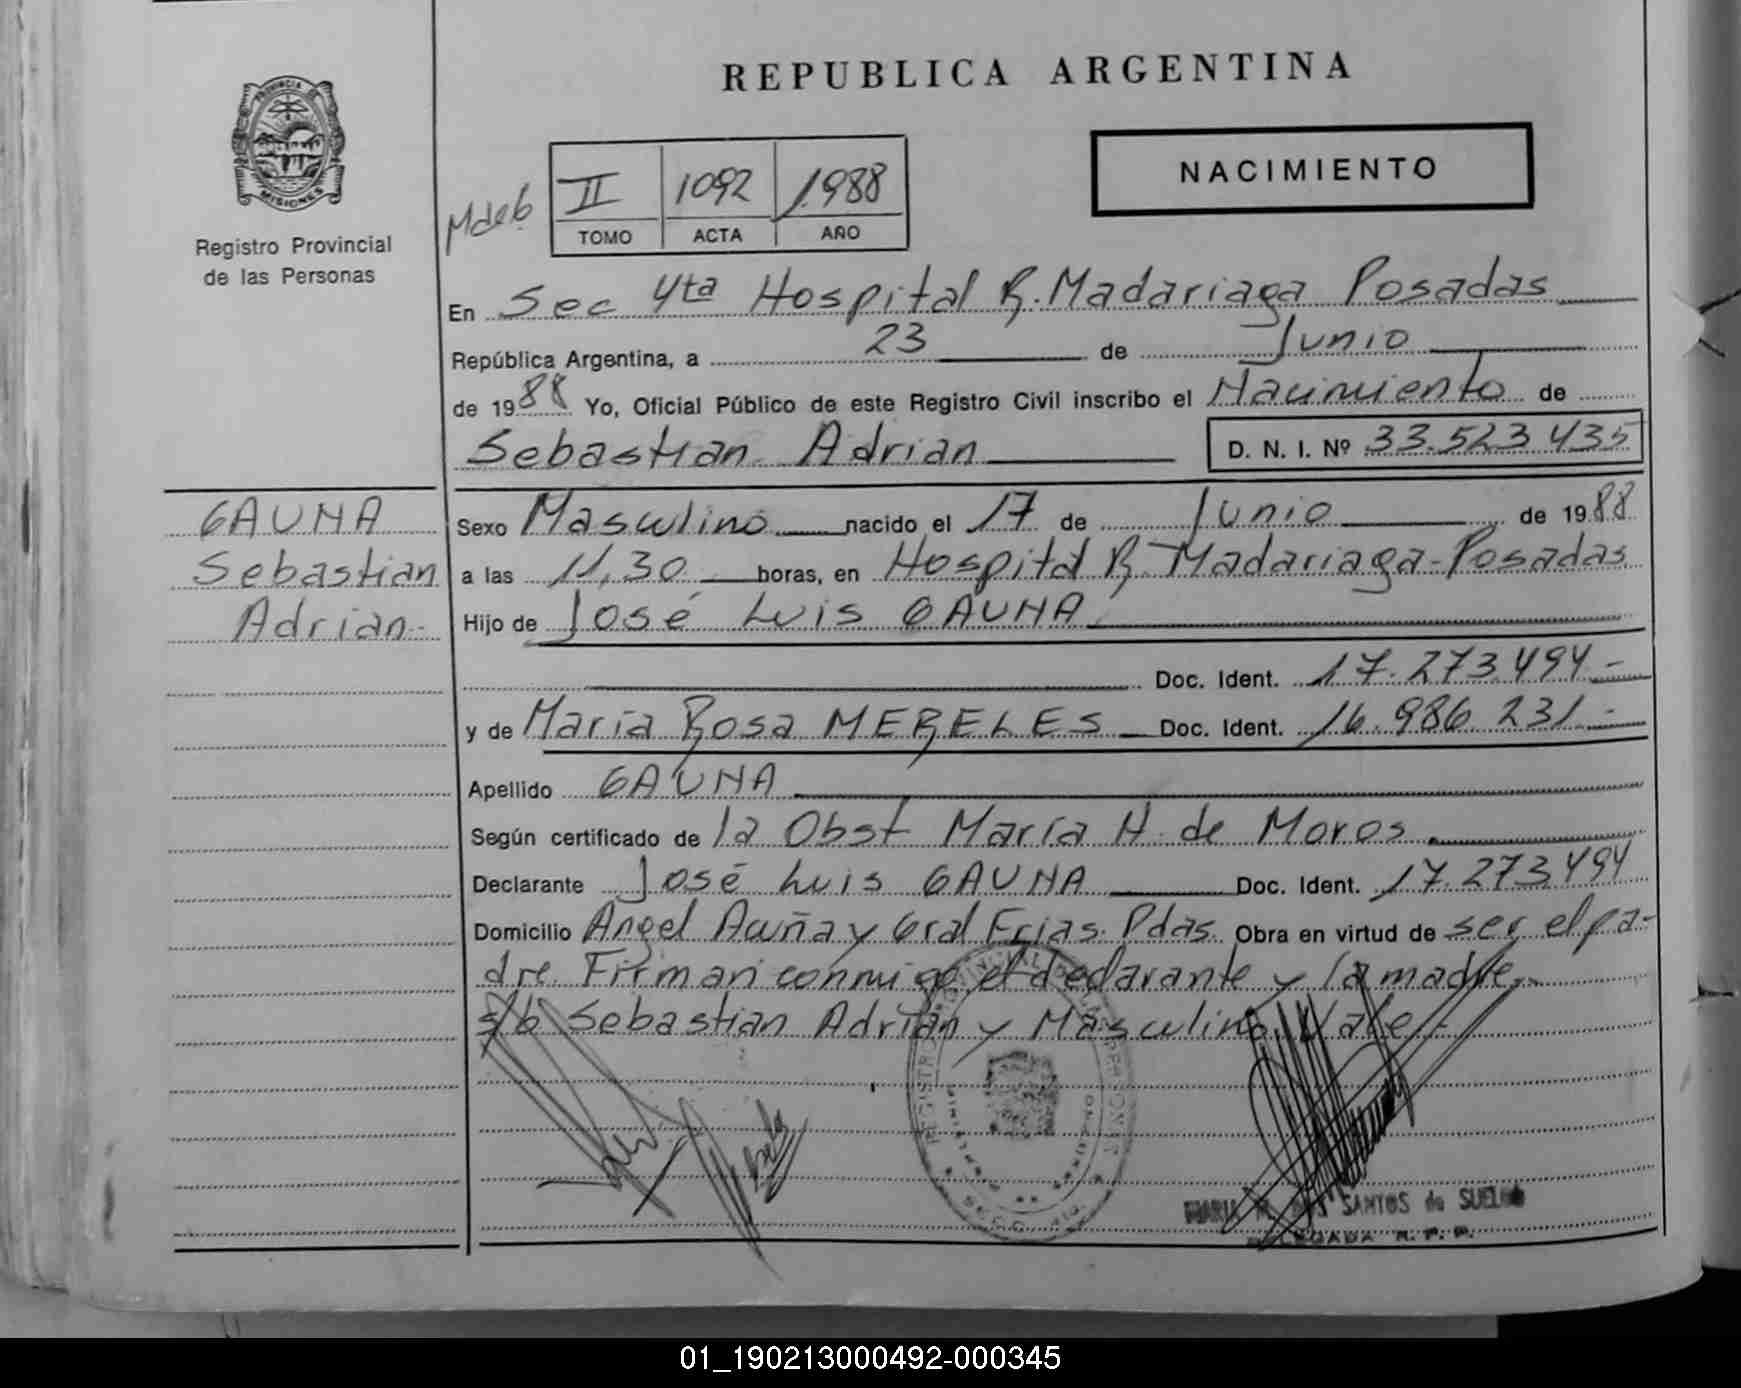 PROVINCIA DE
MISIONES
Registro Provincial
de las Personas
REPUBLICA ARGENTINA
NACIMIENTO
II 1092 1988
TOMO ACTA AÑO
En Sec 4ta Hospital R. Madariaga Posadas
República Argentina, a 23 de Junio
de 1988 Yo, Oficial Público de este Registro Civil inscribo el Nacimiento de
Sebastian Adrian D. N. I. Nº 33.523.435
GAUNA
Sebastian
Adrian-
Sexo Masculino nacido el 17 de Junio de 1988
a las 11,30 horas, en Hospital R. Madariaga-Posadas
Hijo de José Luis GAUNA
Doc. Ident. 17.273.494-
y de María Rosa MERELES Doc. Ident. 16.986.231-
Apellido GAUNA
Según certificado de la Obst María H. de Moros
Declarante José Luis GAUNA Doc. Ident. 17.273.494
Domicilio Angel Acuña y Gral Frias. Pdas. Obra en virtud de ser el pa-
dre. Firman conmigo el declarante y la madre.
s/b Sebastian Adrian y Masculino. Vale-
SANTOS de SUELDO
DELEGADA R. P. P.
01_190213000492-000345